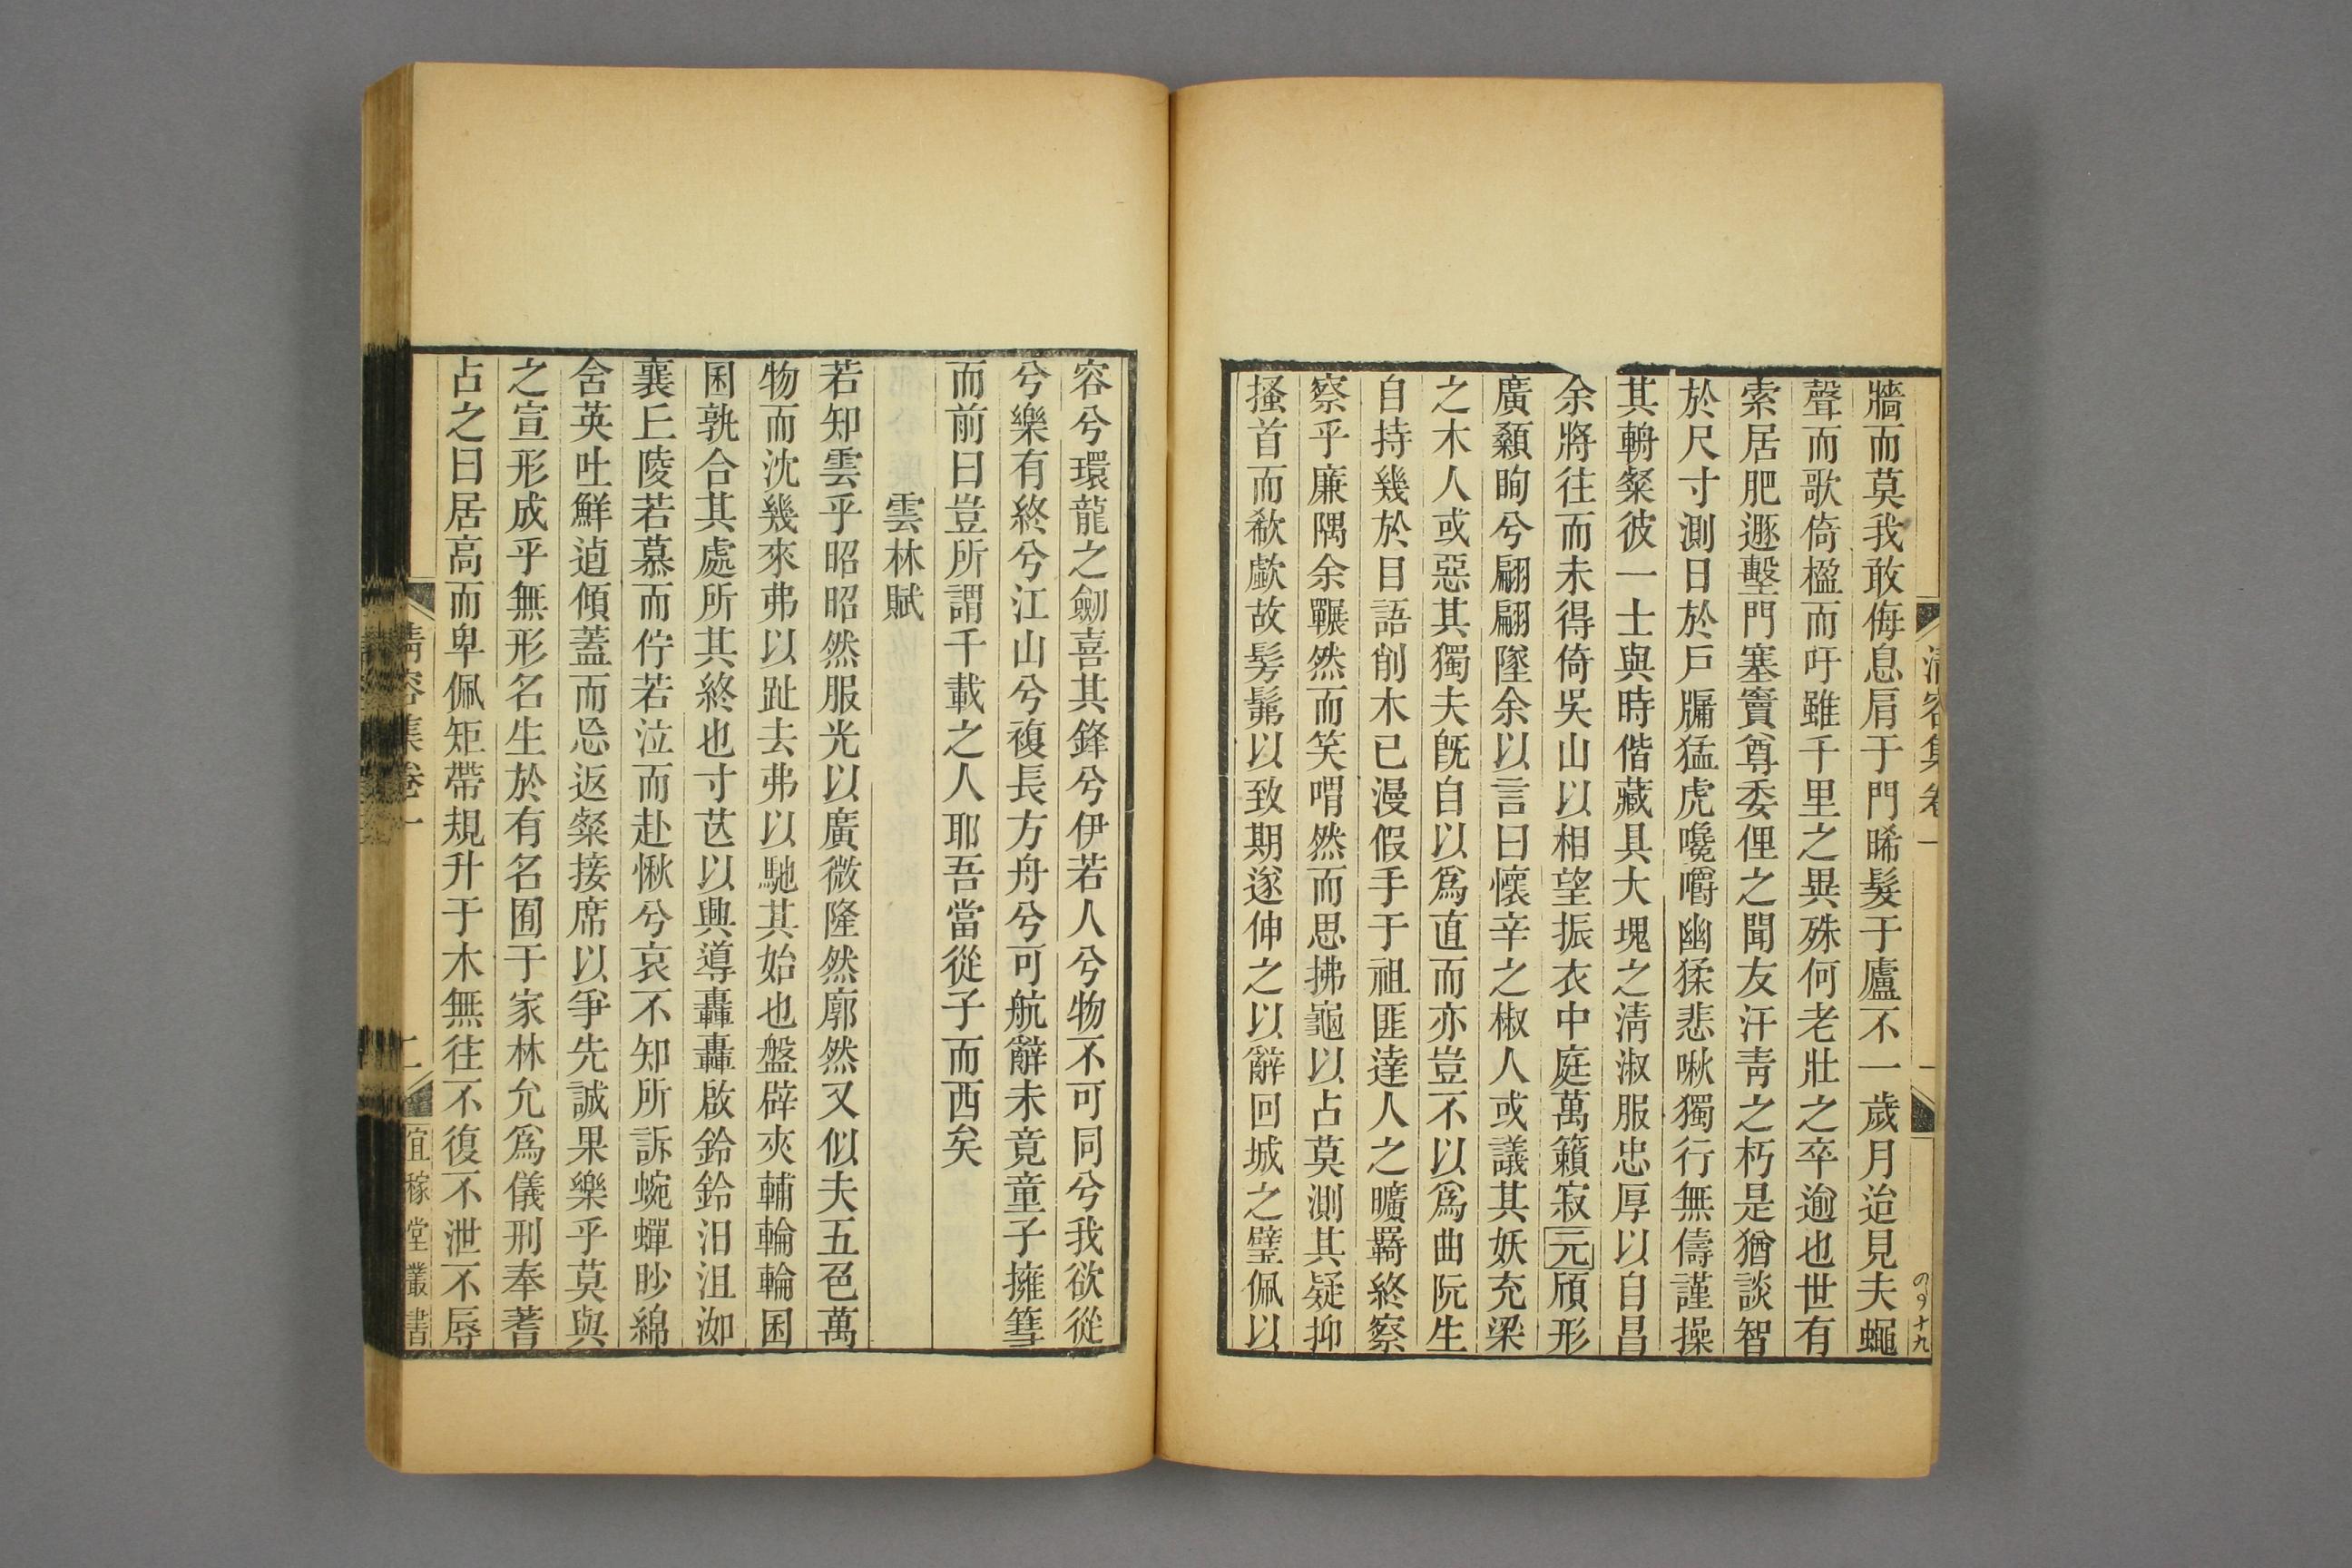 牆而莫我敢侮息肩于門晞髮于廬不一歲月迨見夫蠅
聲而歌倚楹而吁雖千里之異殊何老壯之卒逾也世有
索居肥遯墼門塞竇尊委俚之聞友汗靑之朽是猶談智
於尺寸測日於戶牖猛虎嚵嚼幽猱悲啾獨行無儔謹操
其輈粲彼一士與時偕藏具大塊之淸淑服忠厚以自昌
余將往而未得倚吳山以相望振衣中庭萬籟寂元頎形
廣顙眴兮翩翩墜余以言曰懷辛之椒人或議其妖充梁
之木人或惡其獨夫旣自以爲直而亦豈不以爲曲阮生
自持幾於目語削木已漫假手于祖匪達人之曠羇終察
察乎廉隅余囅然而笑喟然而思拂龜以占莫測其疑抑
搔首而欷歔故髣髴以致期遂伸之以辭回城之璧佩以
淸容集卷一
一
の〇九十九
容兮環龍之劒喜其鋒兮伊若人兮物不可同兮我欲從
兮樂有終兮江山兮複長方舟兮可航辭未竟童子擁篲
而前曰豈所謂千載之人耶吾當從子而西矣
雲林賦
若知雲乎昭昭然服光以廣微隆然廓然又似夫五色萬
物而沈幾來弗以趾去弗以馳其始也盤辟夾輔輪輪困
困孰合其處所其終也寸苡以興導轟轟啟鈴鈴汨沮洳
襄丘陵若慕而佇若泣而赴愀兮哀不知所訴蜿蟬眇綿
舍英吐鮮逌傾蓋而忘返粲接席以爭先誠果樂乎莫與
之宣形成乎無形名生於有名囿于家林允爲儀刑奉蓍
占之曰居高而卑佩矩帶規升于木無往不復不泄不辱
淸容集卷一
二
宜稼堂叢書